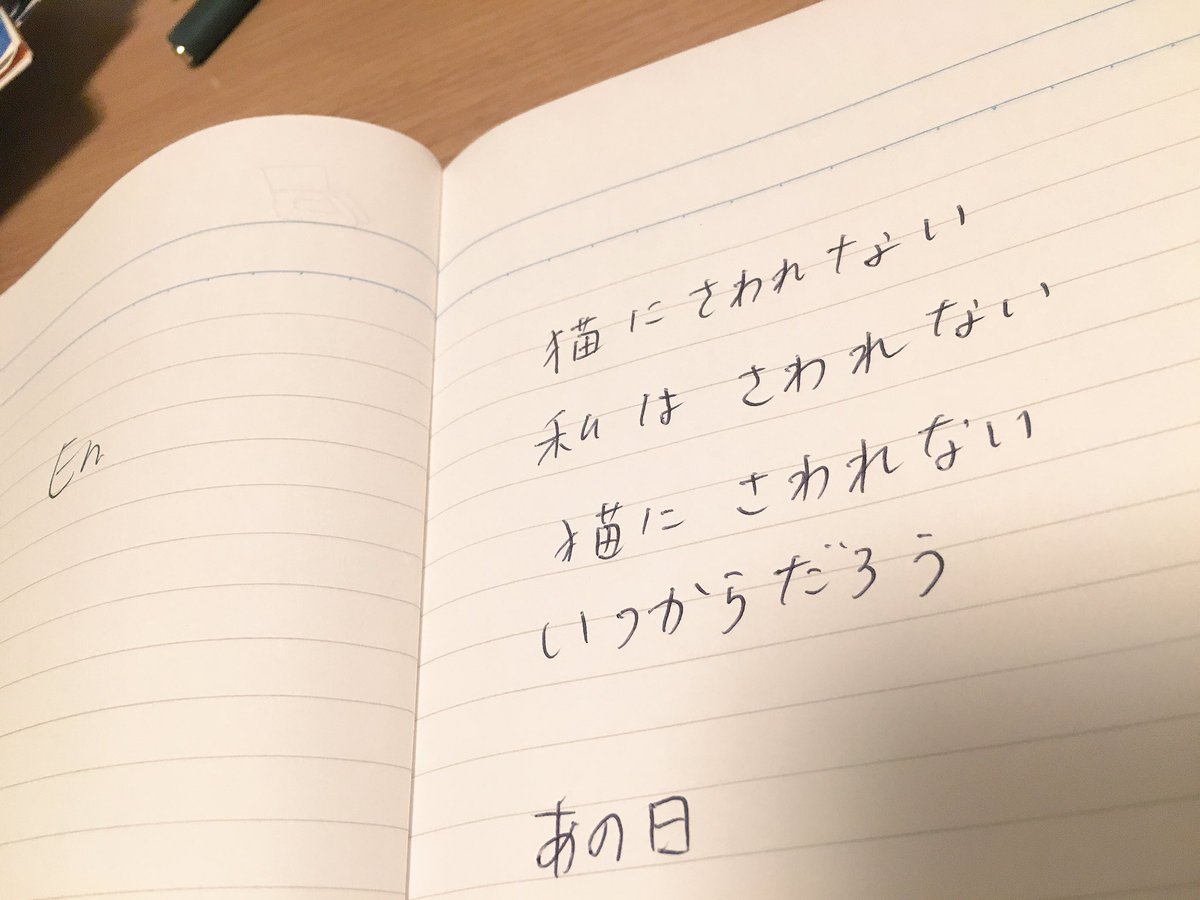 En
猫にさわれない
私はさわれない
猫にさわれない
いつからだろう
あの日